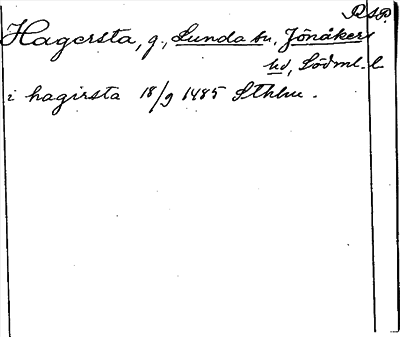 R S P.
Hagersta, g., Lunda sn, Jönåkers
hd, Södml. l
i hagirsta 18/9 1485 Sthbu.